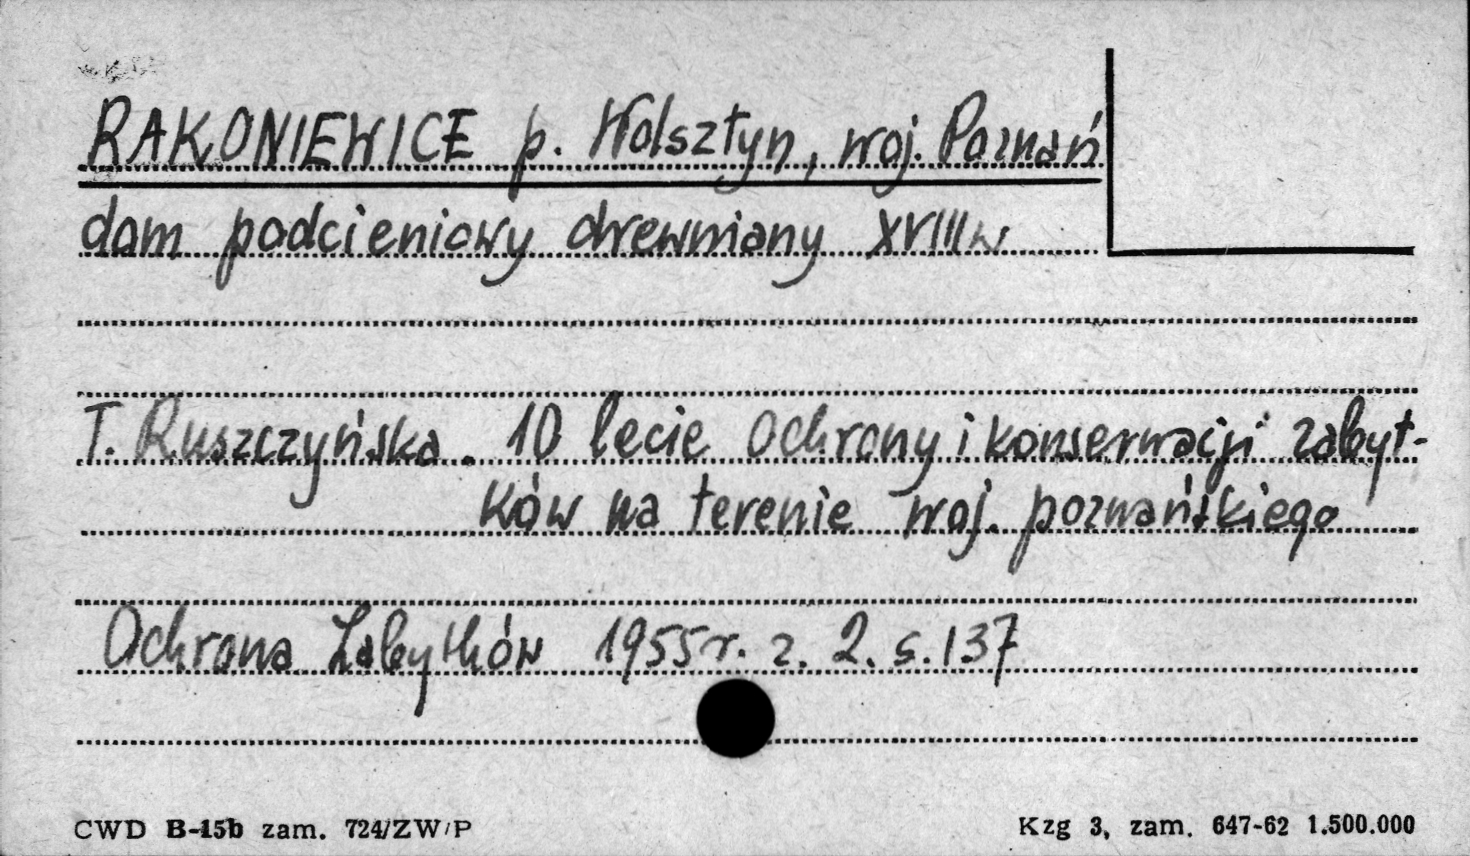 RAKONIEWICE p. Wolsztyn, woj. Poznań
dom podcieniowy drewniany XVIII w
T. Ruszczyńska. 10 lecie Ochrony i konserwacji zabyt-
ków na terenie woj. poznańskiego
Ochrona Zabytków 1955 r. z. 2. s. 137
CWD B-15b zam. 724/ZW/P
Kzg 3, zam. 647-62 1.500.000